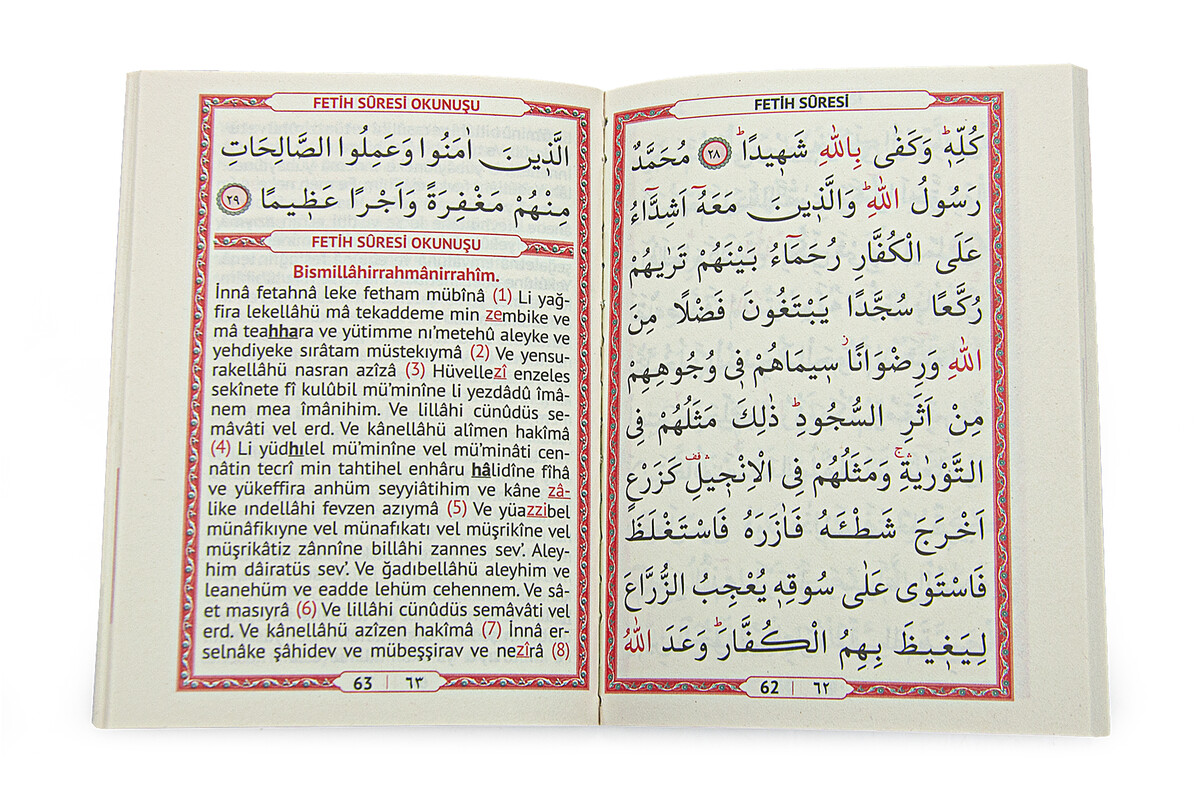 FETİH SÛRESİ
كُلِّهِ۪ۜ وَكَفٰى بِاللّٰهِ شَه۪يدًاۜ ﴿٢٨﴾ مُحَمَّدٌ
رَسُولُ اللّٰهِۜ وَالَّذ۪ينَ مَعَهُٓ اَشِدَّٓاءُ
عَلَى الْكُفَّارِ رُحَمَٓاءُ بَيْنَهُمْ تَرٰيهُمْ
رُكَّعًا سُجَّدًا يَبْتَغُونَ فَضْلًا مِنَ
اللّٰهِ وَرِضْوَانًاۘ س۪يمَاهُمْ ف۪ي وُجُوهِهِمْ
مِنْ اَثَرِ السُّجُودِۜ ذٰلِكَ مَثَلُهُمْ فِي
التَّوْرٰيةِۚۛ وَمَثَلُهُمْ فِي الْاِنْج۪يلِ۠ۛ كَزَرْعٍ
اَخْرَجَ شَطْـَٔهُ فَاٰزَرَهُ فَاسْتَغْلَظَ
فَاسْتَوٰى عَلٰى سُوقِه۪ يُعْجِبُ الزُّرَّاعَ
لِيَغ۪يظَ بِهِمُ الْكُفَّارَۜ وَعَدَ اللّٰهُ
62 | ٦٢
FETİH SÛRESİ OKUNUŞU
الَّذ۪ينَ اٰمَنُوا وَعَمِلُوا الصَّالِحَاتِ
مِنْهُمْ مَغْفِرَةً وَاَجْرًا عَظ۪يمًا ﴿٢٩﴾
FETİH SÛRESİ OKUNUŞU
Bismillâhirrahmânirrahîm.
İnnâ fetahnâ leke fetham mübînâ (1) Li yağ-
fira lekellâhü mâ tekaddeme min zembike ve
mâ teahhara ve yütimme nı'metehû aleyke ve
yehdiyeke sırâtam müstekıymâ (2) Ve yensu-
rakellâhü nasran azîzâ (3) Hüvellezî enzeles
sekînete fî kulûbil mü'minîne li yezdâdû îmâ-
nem mea îmânihim. Ve lillâhi cünûdüs se-
mâvâti vel erd. Ve kânellâhü alîmen hakîmâ
(4) Li yüdhılel mü'minîne vel mü'minâti cen-
nâtin tecrî min tahtihel enhâru hâlidîne fîhâ
ve yükeffira anhüm seyyiâtihim ve kâne zâ-
like ındellâhi fevzen azıymâ (5) Ve yüazzibel
münâfikıyne vel münafıkatı vel müşrikîne vel
müşrikâtiz zânnîne billâhi zannes sev'. Aley-
him dâiratüs sev'. Ve ğadıbellâhü aleyhim ve
leanehüm ve eadde lehüm cehennem. Ve sâ-
et masıyrâ (6) Ve lillâhi cünûdüs semâvâti vel
erd. Ve kânellâhü azîzen hakîmâ (7) İnnâ er-
selnâke şâhidev ve mübeşşirav ve nezîrâ (8)
63 | ٦٣